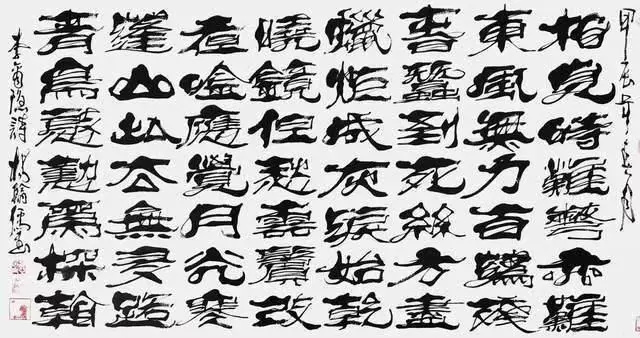 甲辰年月
相見時難別亦難
東風無力百花殘
春蠶到死絲方盡
蠟炬成灰淚始乾
曉鏡但愁雲鬢改
夜吟應覺月光寒
蓬山此去無多路
青鳥殷勤為探
李商隱詩 楊書